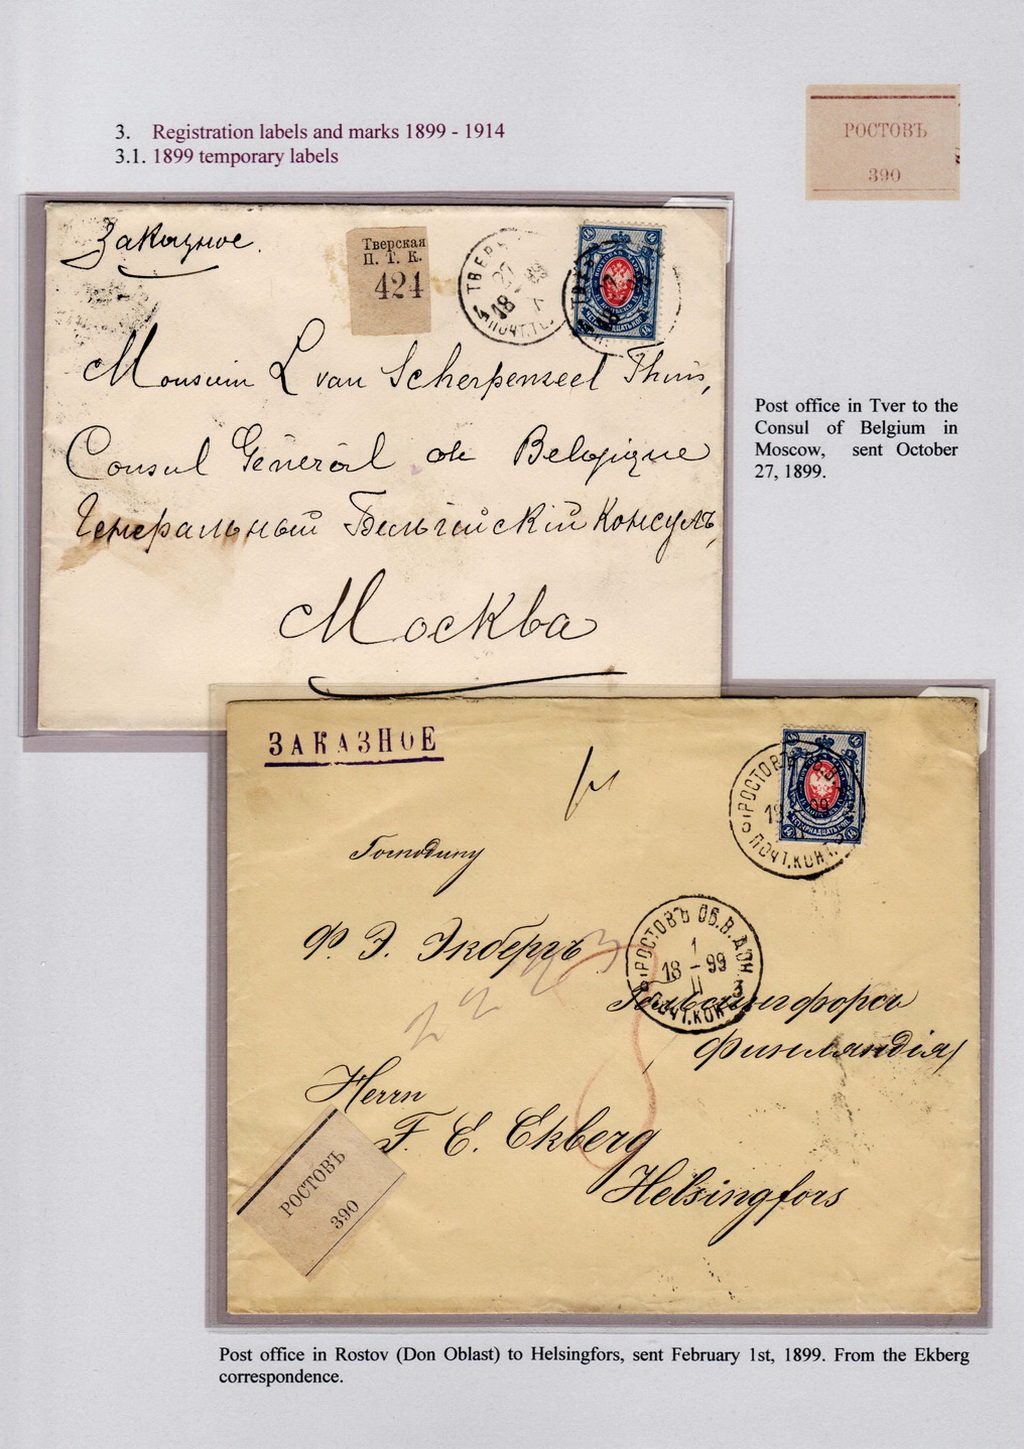 3. Registration labels and marks 1899 - 1914
3.1. 1899 temporary labels
РОСТОВЪ
390
Заказное.
Тверская
П. Т. К.
424
ТВЕРЬ
27
18 99
X
ПОЧТ.ТЕ
14 14
Monsieur L van Scherpenzeel Thim,
Consul Général de Belgique
Генеральный Бельгийскій Консулъ,
Москва
Post office in Tver to the
Consul of Belgium in
Moscow, sent October
27, 1899.
ЗАКАЗНОЕ
РОСТОВЪ
ПОЧТ.КОНТ.
ЧЕТЫРНАДЦАТЬ КОП.
14 14
Господину
Ф. Э. Экбергъ
РОСТОВЪ ОБ.В.ДОН. 3
1
18 - 99
II
ПОЧТ.КОН
Гельсингфорсъ
Финляндія
Herrn
F. E. Ekberg
Helsingfors
РОСТОВЪ
390
Post office in Rostov (Don Oblast) to Helsingfors, sent February 1st, 1899. From the Ekberg
correspondence.